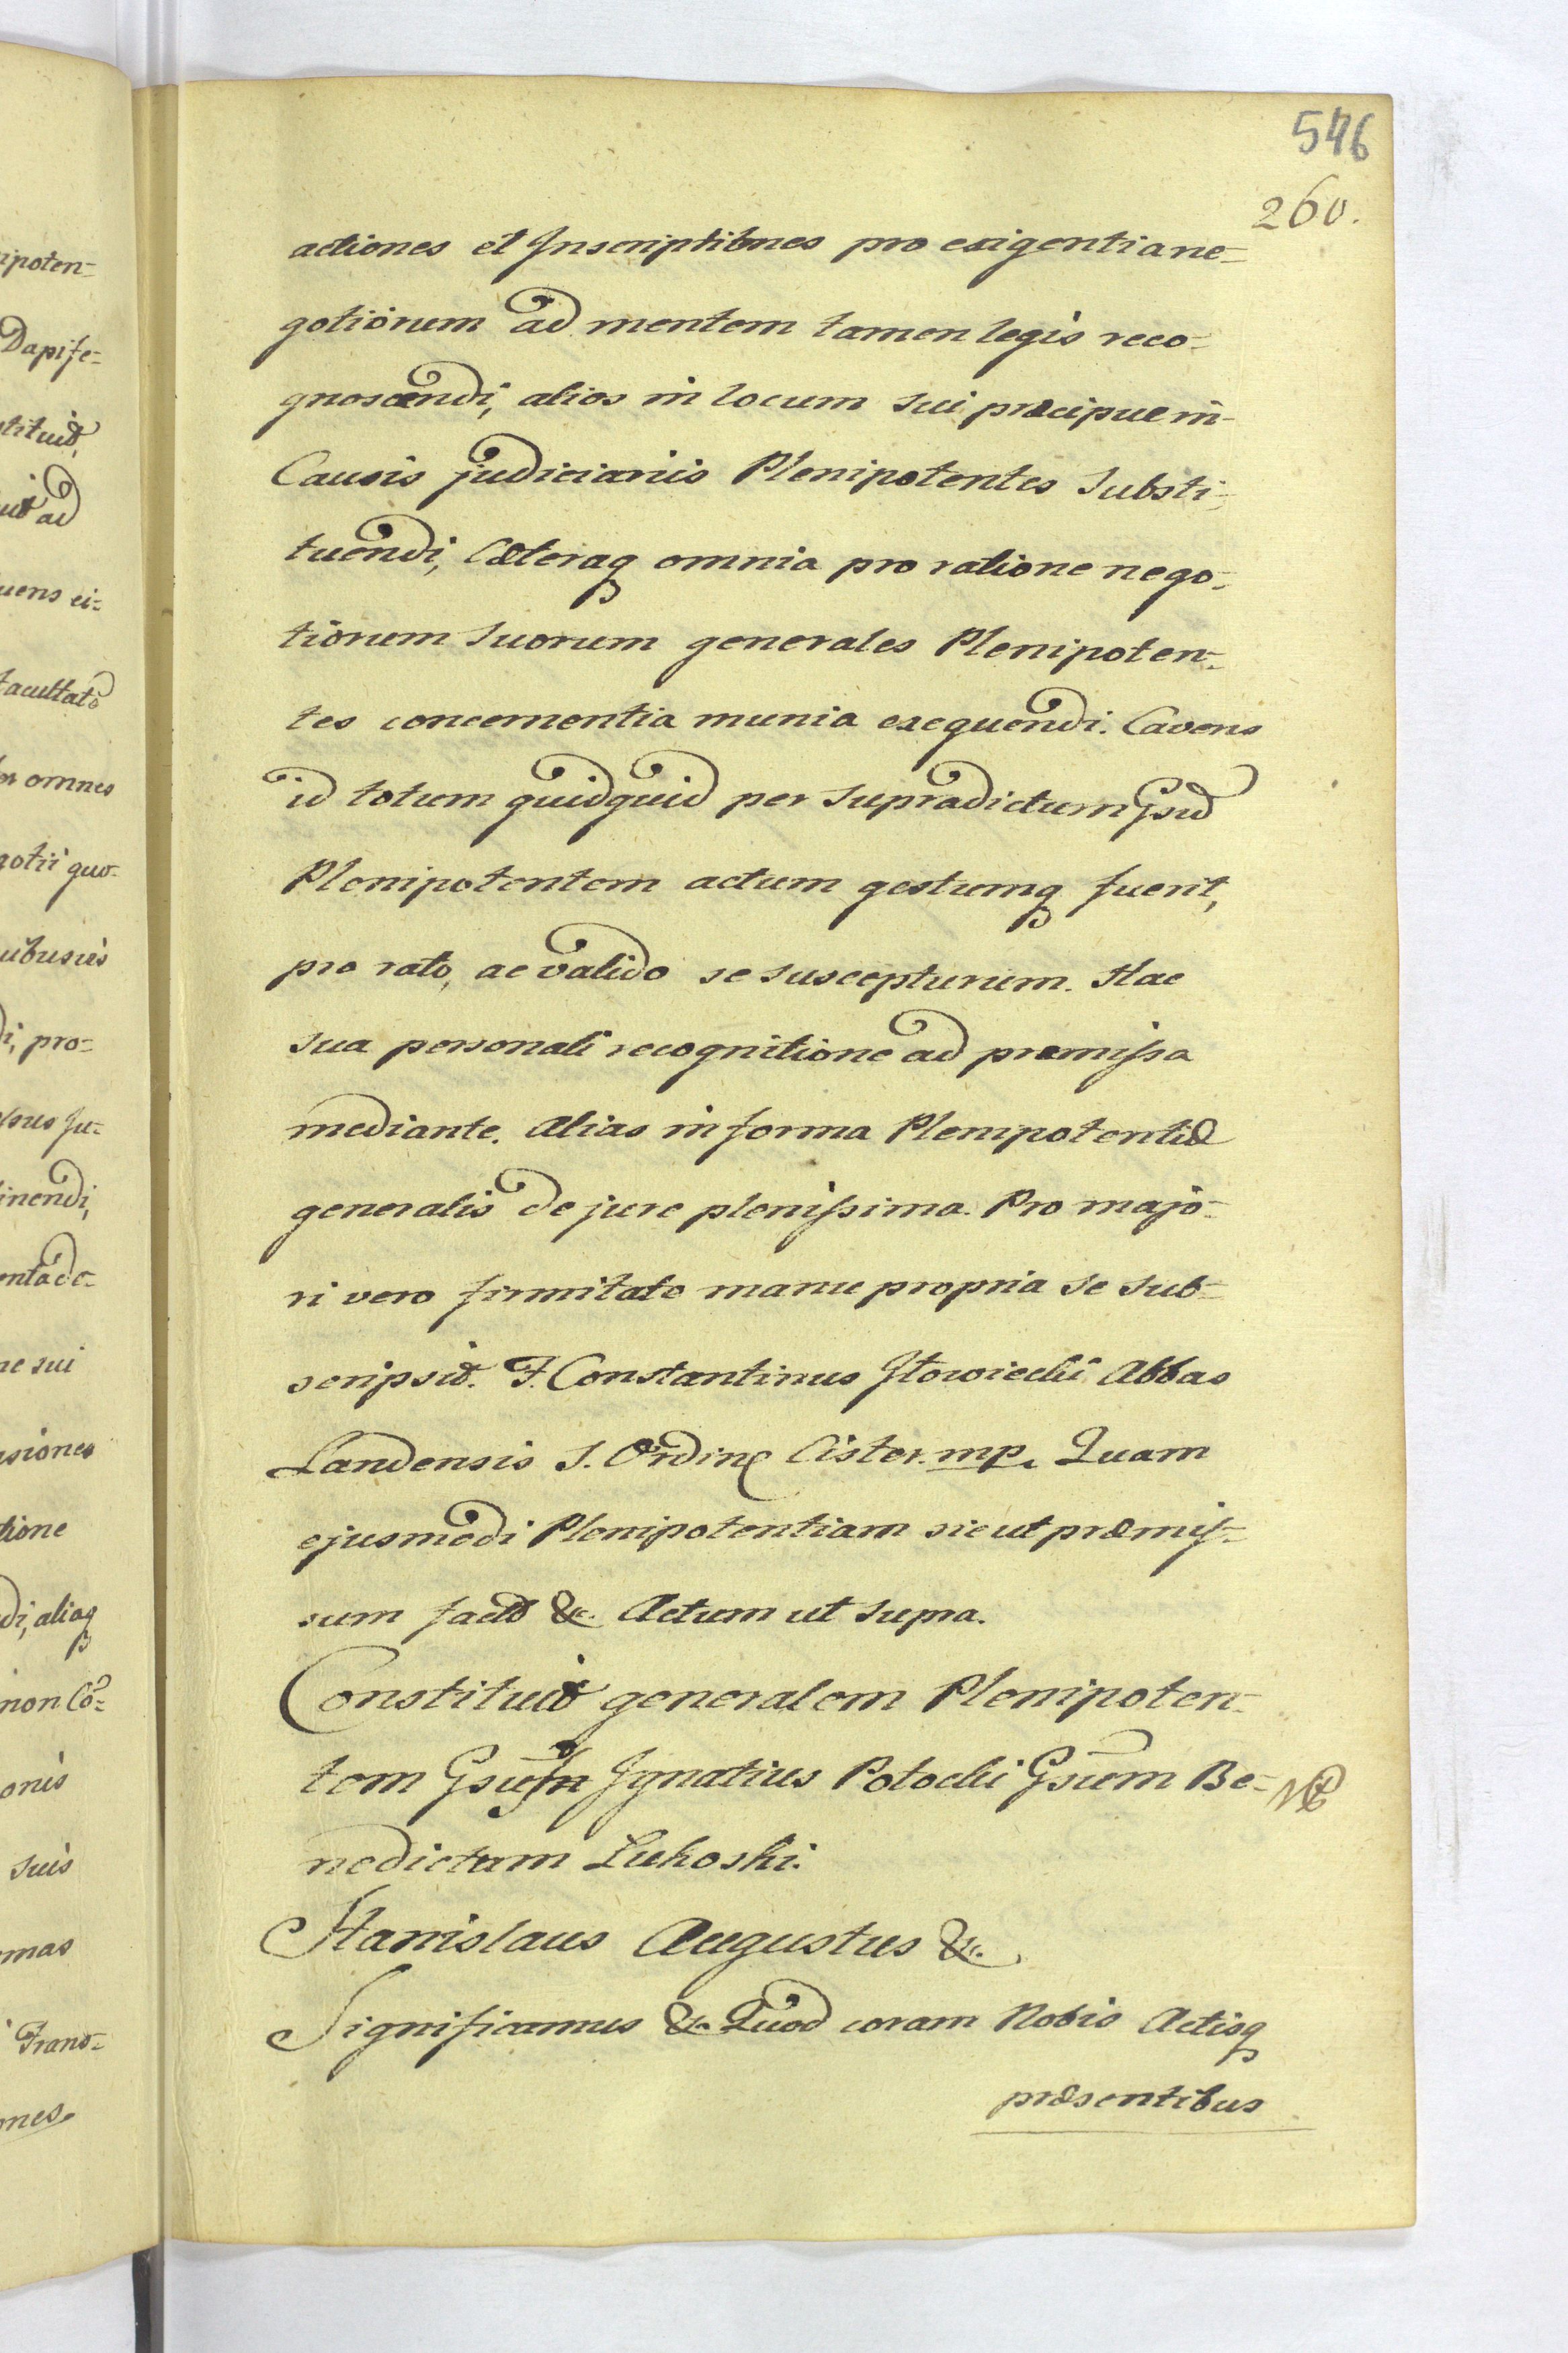 546
260.
actiones et Inscriptiones pro exigentia ne-
gotiorum ad mentem tamen legis reco-
gnoscendi, alios in locum sui præcipue in
Causis judiciariis Plenipotentes substi-
tuendi, Cæteraq omnia pro ratione nego-
tiorum suorum generales Plenipoten-
tes concernentia munia exequendi. Cavens
id totum quidquid per supradictum Gsud
Plenipotentem actum gestumq fuerit,
pro rato, ac valido se suscepturum. Hac
sua personali recognitione ad præmissa
mediante. Alias in forma Plenipotentiæ
generalis de jure plenissima. Pro majo-
ri vero firmitate manu propria se sub-
scripsit. F. Constantinus Iłowiecki Abbas
Landensis S. Ordinę Cister. mp. Quam
ejusmodi Plenipotentiam sicut præmis-
sum facto &c. Actum ut supra.
Constituit generalem Plenipoten-
tem Ignatius Potocki Gsum Be-
nedictum Lukoski.
Stanislaus Augustus &c.
Significamus &c. Quod coram Nobis Actisq
præsentibus
ipoten-
Dapife-
stituit,
ad
uens ei-
facultatē
omnes
gotii quo-
uibusvis
di, pro-
sus Ju-
inendi,
ne sui
siones
tione
di, aliaq
non Cō-
onis
suis
mas
Trans-
ones.